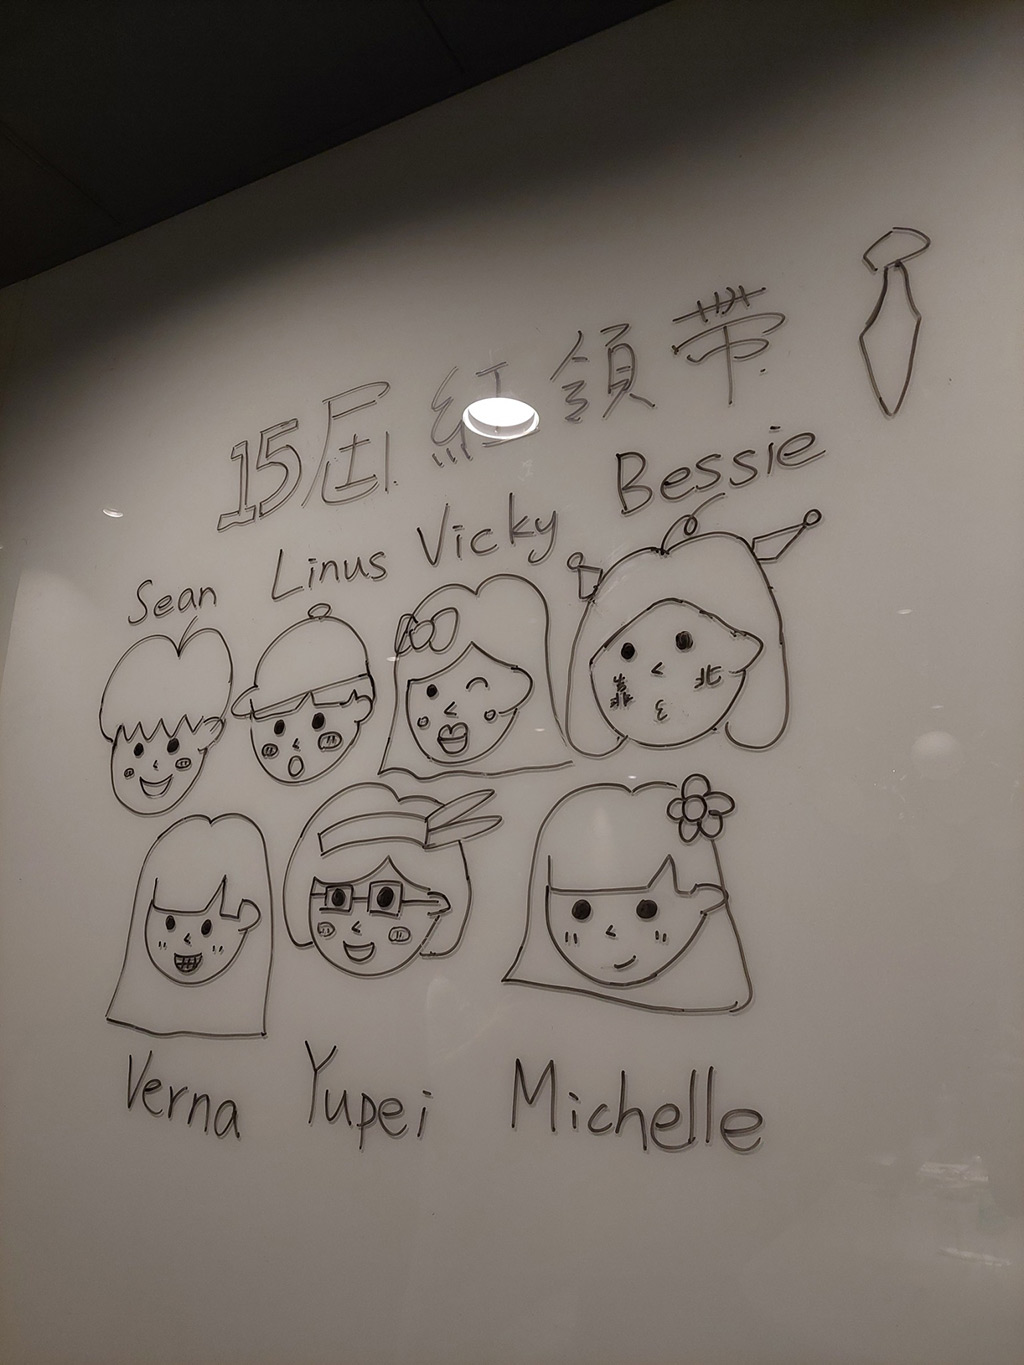 15屆紅領帶
Sean Linus Vicky Bessie
北
Verna Yupei Michelle